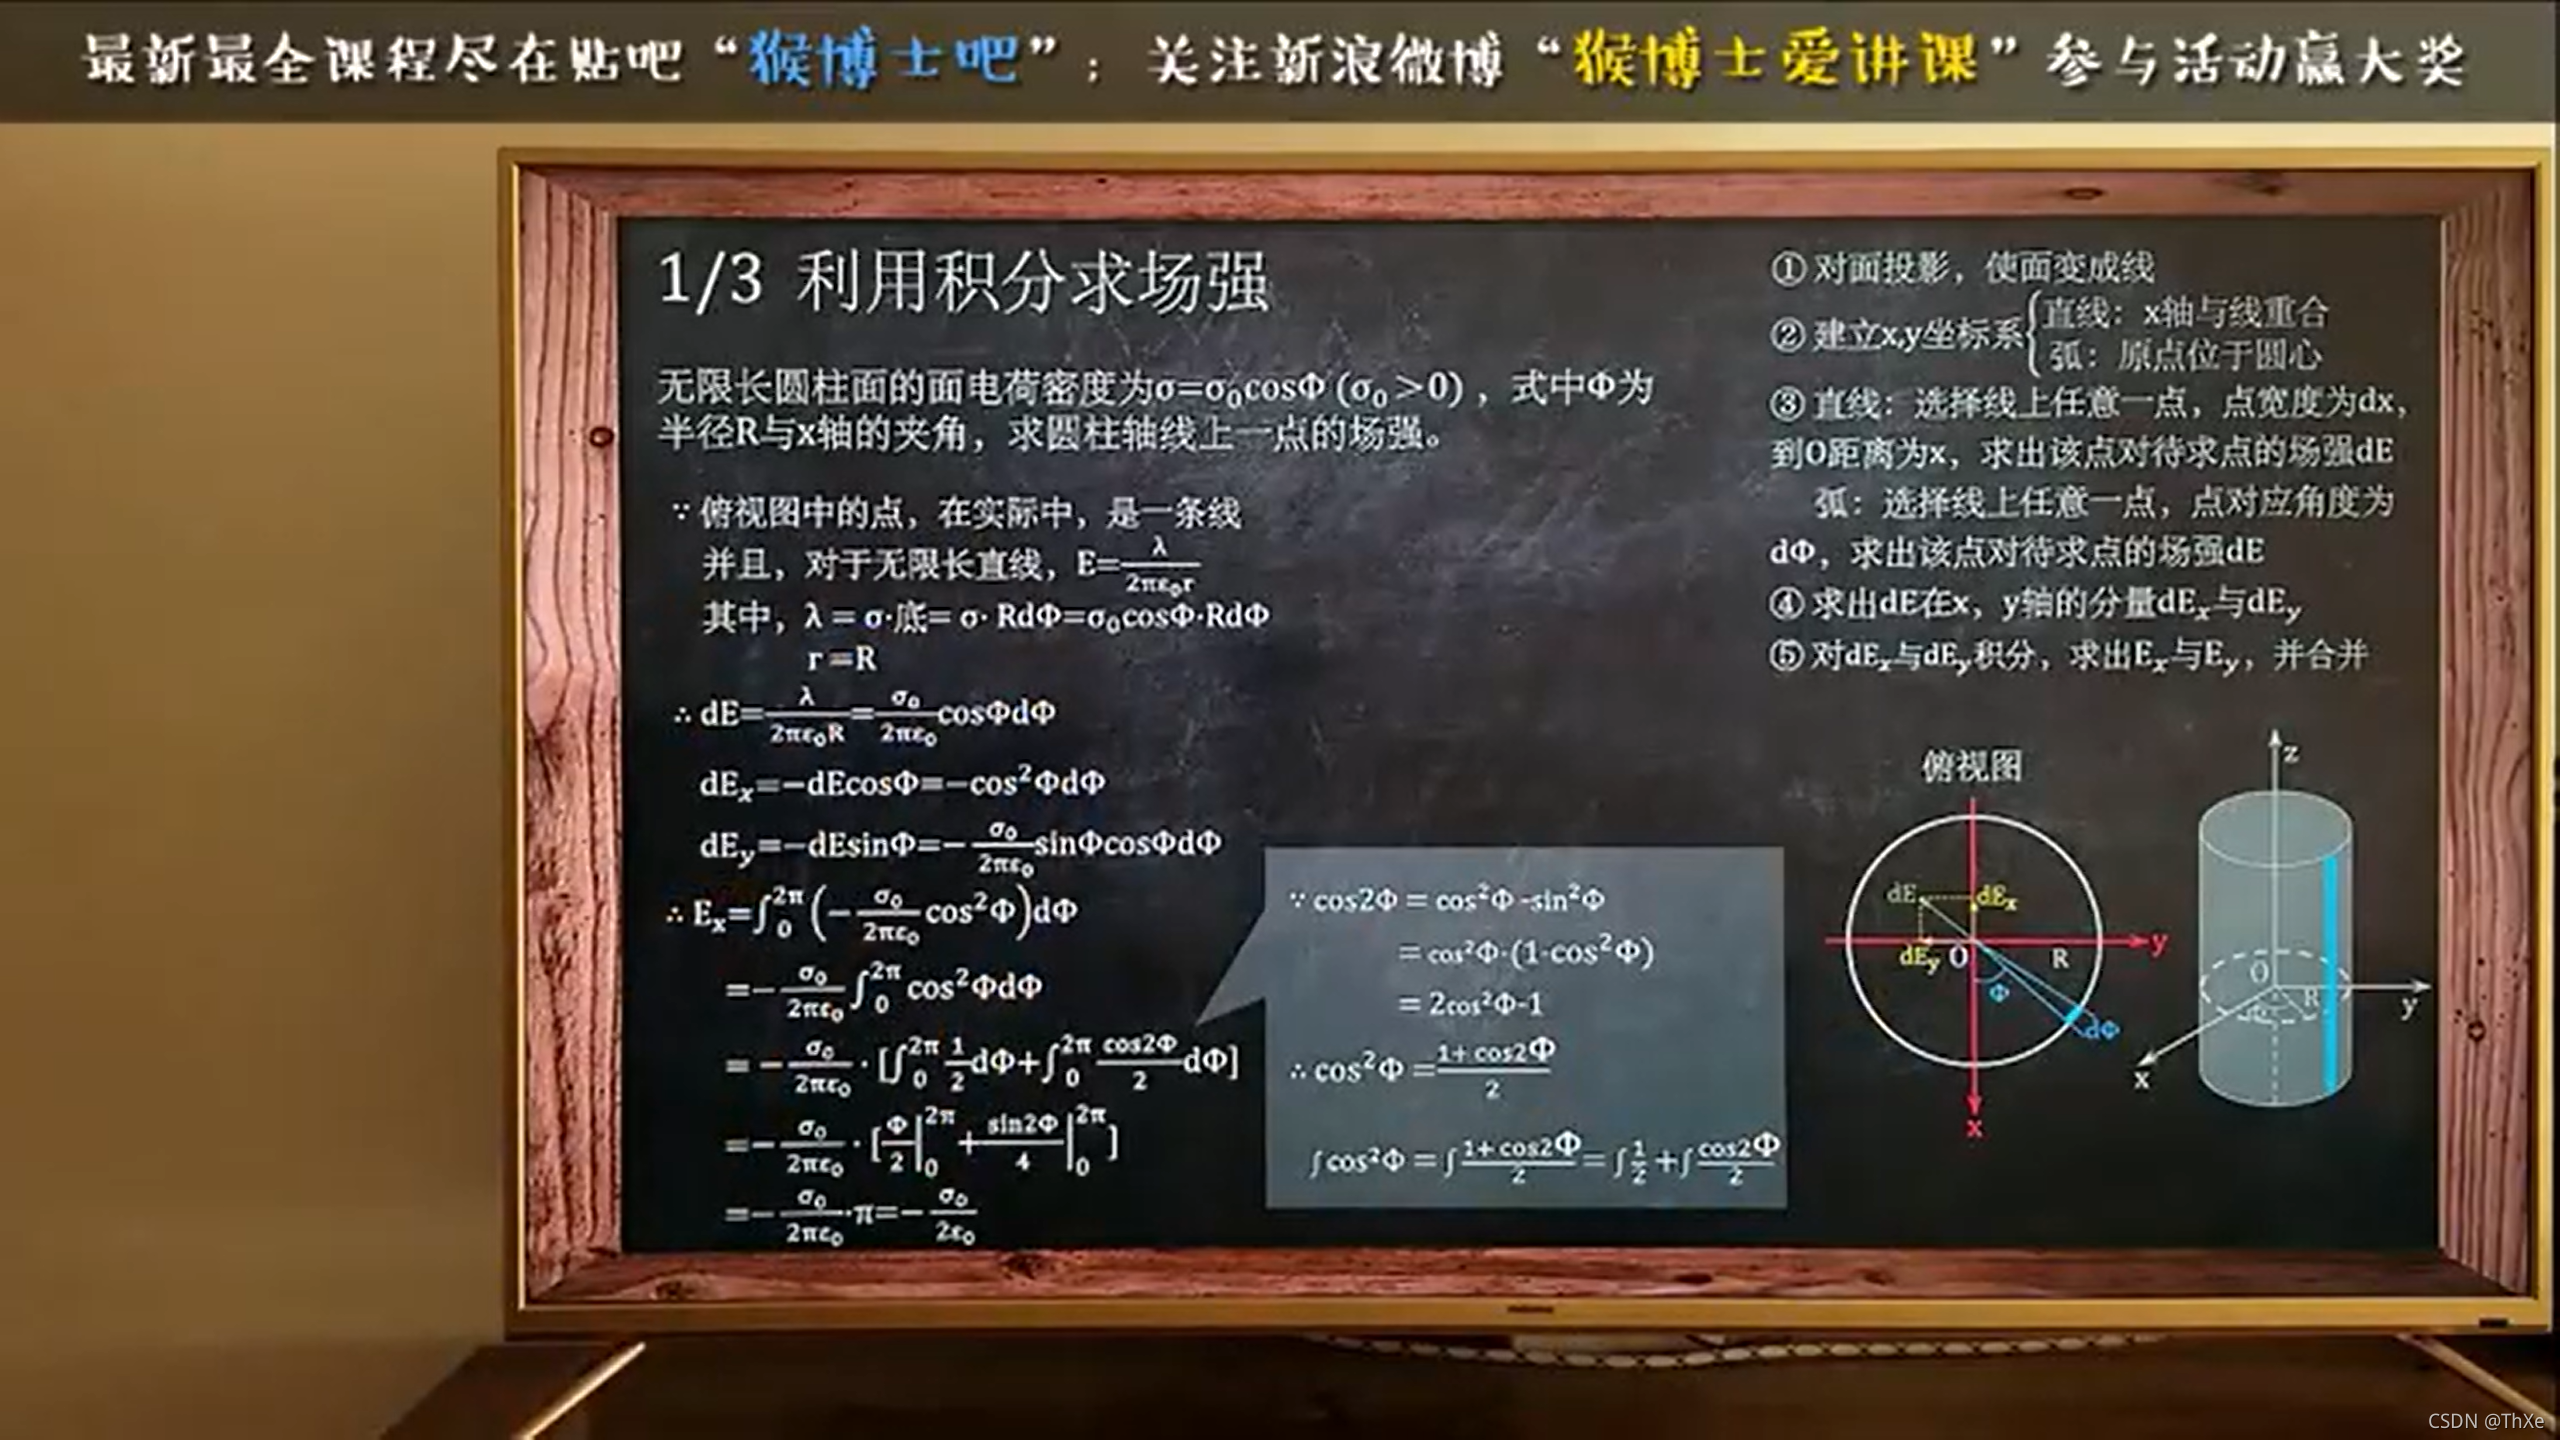 最新最全课程尽在贴吧“猴博士吧”；关注新浪微博“猴博士爱讲课”参与活动赢大奖
1/3 利用积分求场强
无限长圆柱面的面电荷密度为σ=σ₀cosΦ (σ₀>0) ，式中Φ为
半径R与x轴的夹角，求圆柱轴线上一点的场强。
∵ 俯视图中的点，在实际中，是一条线
并且，对于无限长直线，E=λ/2πε₀r
其中，λ = σ·底= σ· RdΦ=σ₀cosΦ·RdΦ
r =R
∴ dE=λ/2πε₀R=σ₀/2πε₀ cosΦdΦ
dEₓ=−dEcosΦ=−cos²ΦdΦ
dE_y=−dEsinΦ=−σ₀/2πε₀ sinΦcosΦdΦ
∴ Eₓ=∫₀^2π (−σ₀/2πε₀ cos²Φ)dΦ
=−σ₀/2πε₀ ∫₀^2π cos²ΦdΦ
= −σ₀/2πε₀ · [∫₀^2π 1/2 dΦ+∫₀^2π cos2Φ/2 dΦ]
=−σ₀/2πε₀ · [Φ/2|₀^2π +sin2Φ/4|₀^2π]
=−σ₀/2πε₀ ·π=−σ₀/2ε₀
∵ cos2Φ = cos²Φ -sin²Φ
= cos²Φ-(1-cos²Φ)
= 2cos²Φ-1
∴ cos²Φ =1+ cos2Φ/2
∫cos²Φ = ∫1+ cos2Φ/2= ∫1/2 +∫cos2Φ/2
① 对面投影，使面变成线
② 建立x,y坐标系{直线：x轴与线重合
弧：原点位于圆心
③ 直线：选择线上任意一点，点宽度为dx，
到O距离为x，求出该点对待求点的场强dE
弧：选择线上任意一点，点对应角度为
dΦ，求出该点对待求点的场强dE
④ 求出dE在x，y轴的分量dEₓ与dE_y
⑤ 对dEₓ与dE_y积分，求出Eₓ与E_y，并合并
俯视图
dE
dEₓ
dE_y
O
R
y
Φ
dΦ
x
z
O
R
y
x
CSDN @ThXe